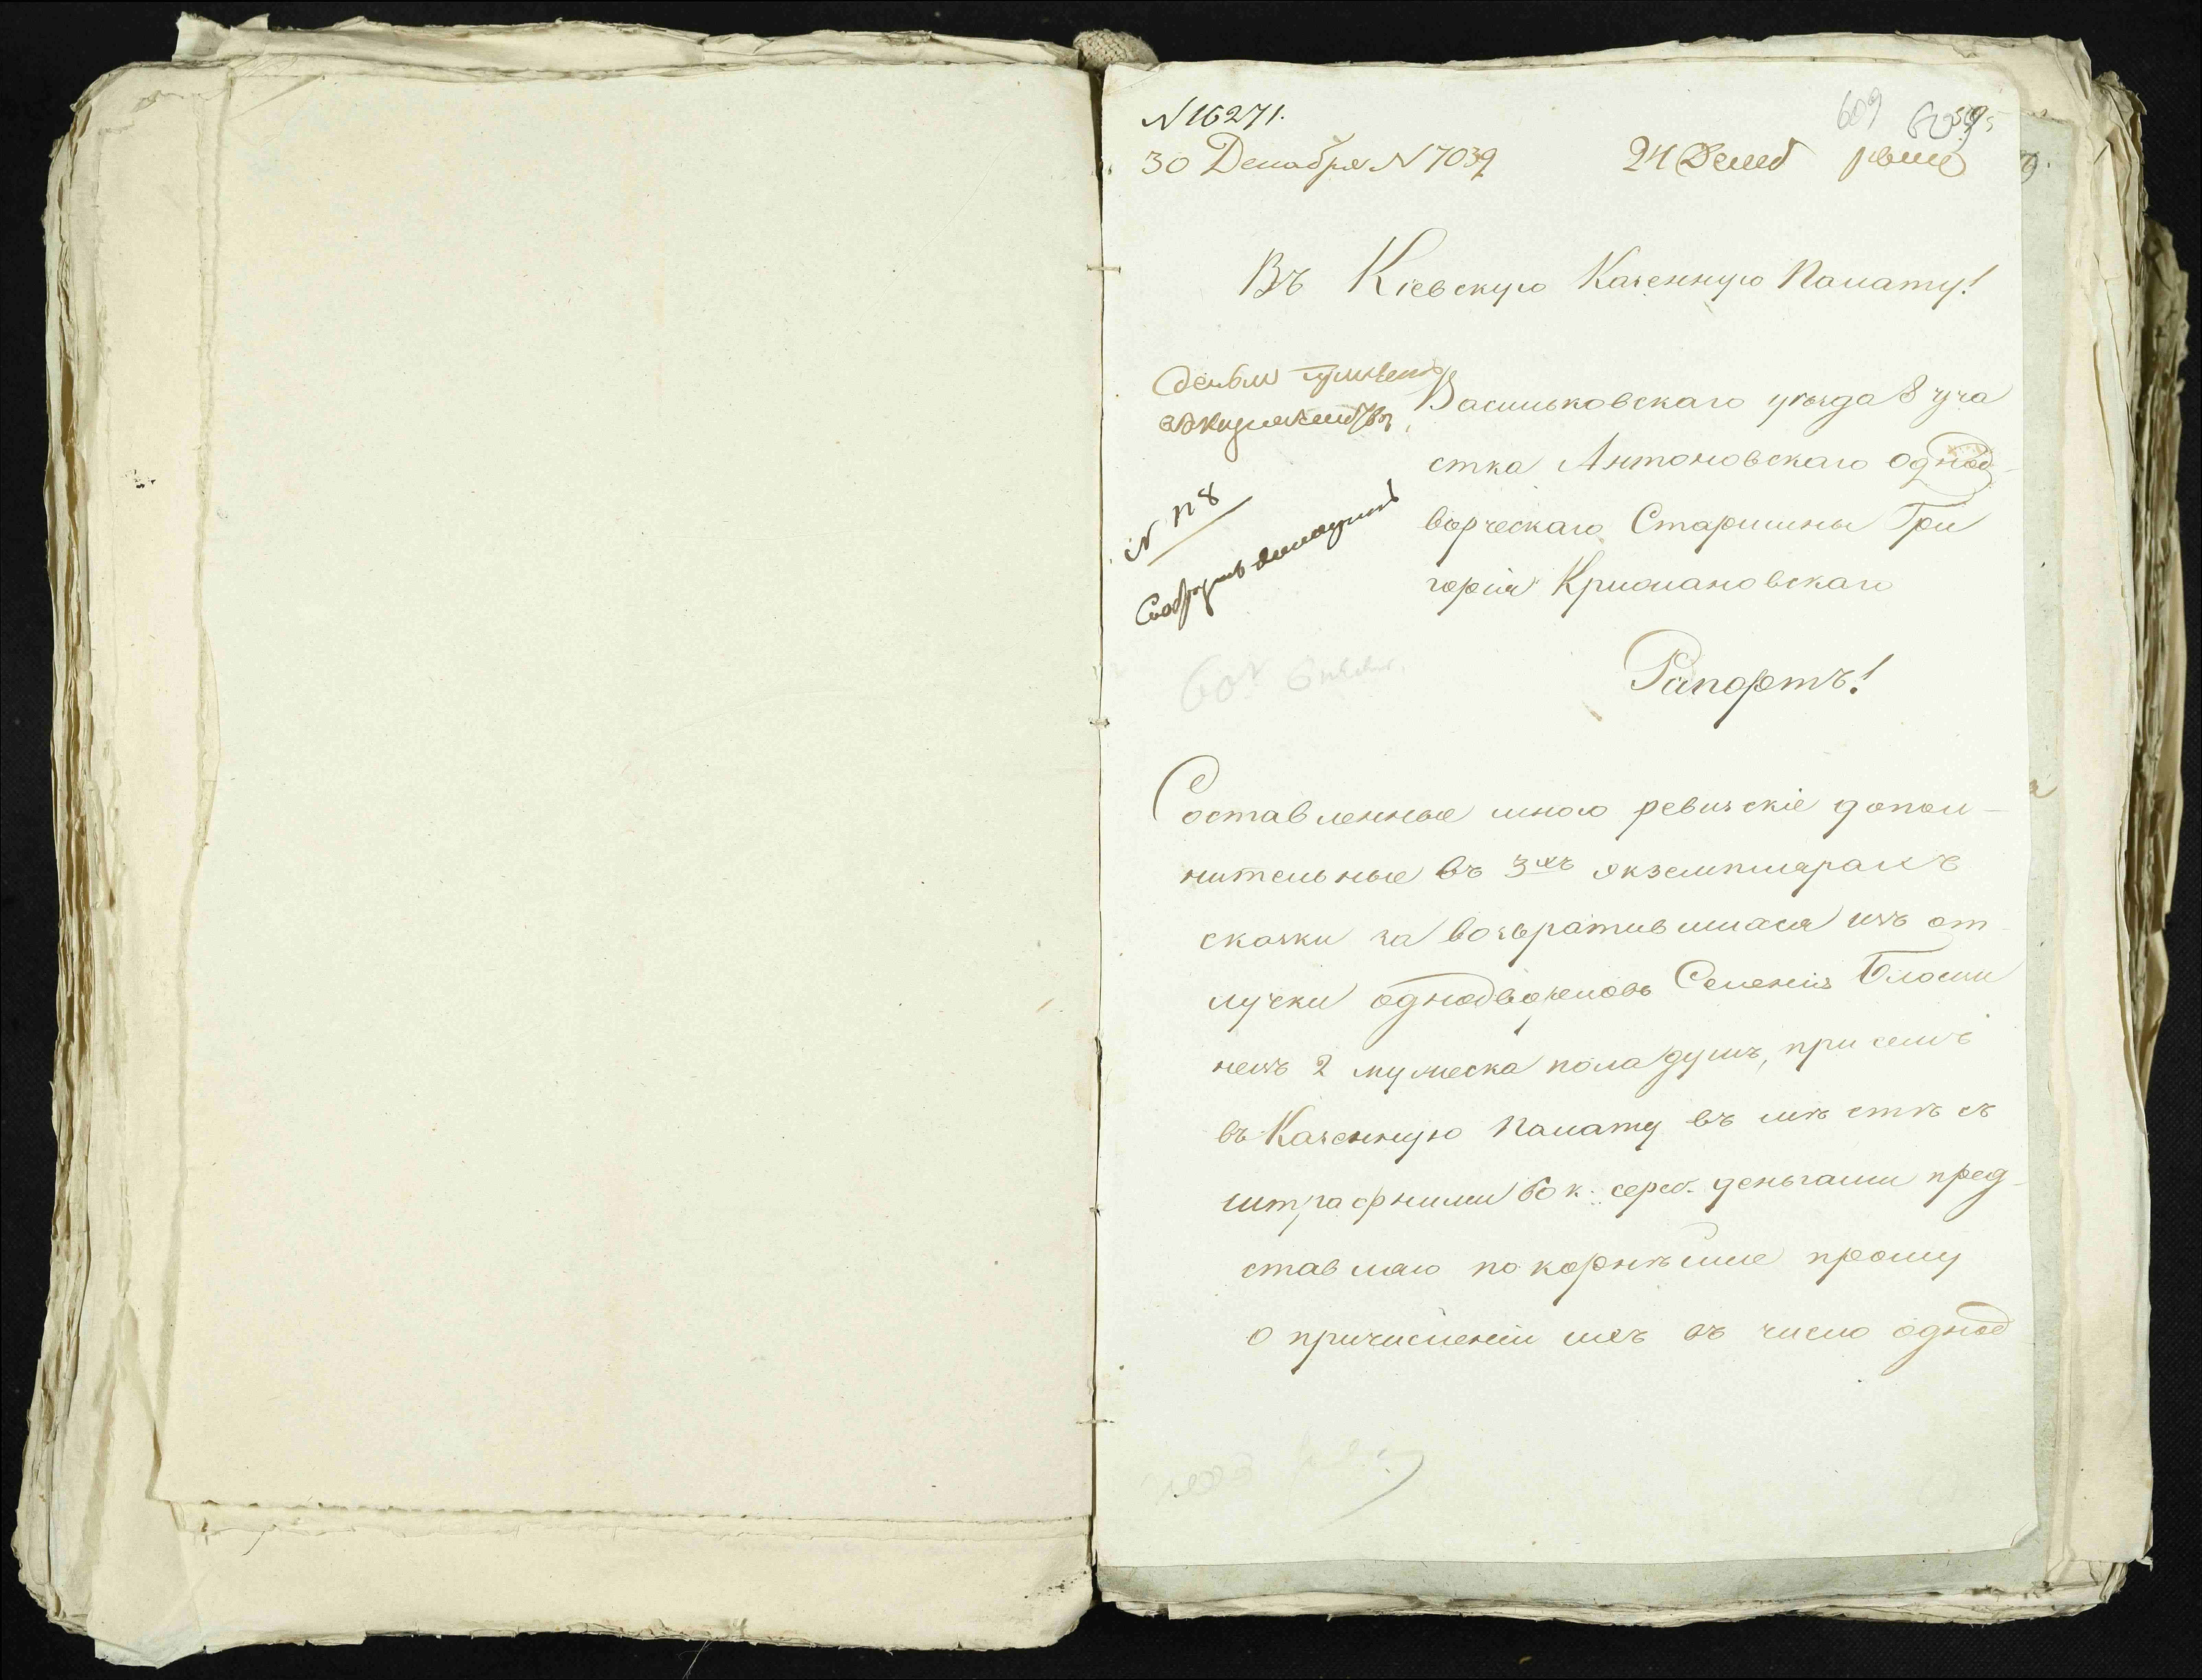 N 16271.
609
30 Декабря N 7039
24 Декаб ревиз
Въ Кіевскую Казенную Палату!
Васильковскаго уѣзда 8 уча
стка Антоновскаго Однод-
ворческаго Старшины Гри
горія Крижановскаго
N 118
Рапортъ!
Составленные мною ревизскіе допол-
нительные въ 3хъ экземплярахъ
сказки за возвратившихся изъ от-
лучки однодворцовъ Семенія
2 мужеска пола душъ, при семъ
въ Казенную Палату въ мѣстѣ съ
штрафными 60 к: сереб. деньгами пред-
ставляю покорнѣйше прошу
о причисленіи ихъ въ число однод